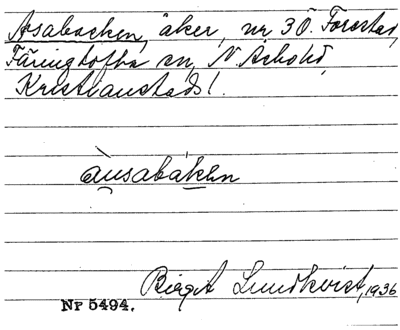 Åsabacken, åker, nr 3 Ö. Forestad,
Färingtofta sn, N Åsbohd,
Kristianstads l.
àusabákən
Birgit Lundkvist, 1936
Nr 5494.